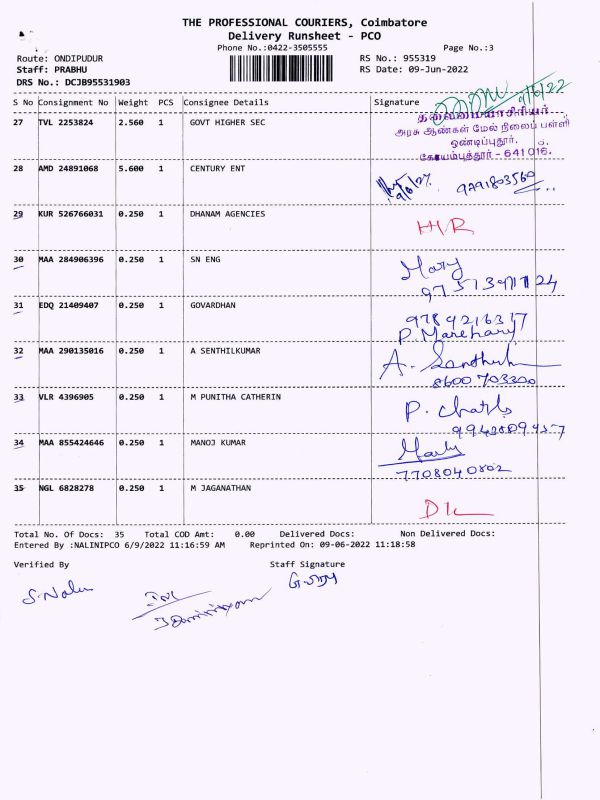 THE PROFESSIONAL COURIERS, Coimbatore
Delivery Runsheet - PCO
Phone No.:0422-3505555 Page No.:3
Route: ONDIPUDUR RS No.: 955319
Staff: PRABHU RS Date: 09-Jun-2022
DRS No.: DCJB95531903
S No Consignment No Weight PCS Consignee Details Signature
9/6/22
27 TVL 2253824 2.560 1 GOVT HIGHER SEC
தலைமையாசிரியர்
அரசு ஆண்கள் மேல் நிலைப் பள்ளி
ஒண்டிப்புதூர்.
கோயம்புத்தூர் - 641 016.
28 AMD 24891068 5.600 1 CENTURY ENT
9791803560
29 KUR 526766031 0.250 1 DHANAM AGENCIES
H/R
30 MAA 284906396 0.250 1 SN ENG
Mary
31 EDQ 21409407 0.250 1 GOVARDHAN
9789216317
32 MAA 290135016 0.250 1 A SENTHILKUMAR
A.
8600703300
33 VLR 4396905 0.250 1 M PUNITHA CATHERIN
P. Charls
34 MAA 855424646 0.250 1 MANOJ KUMAR
7708040802
35 NGL 6828278 0.250 1 M JAGANATHAN
D/c
Total No. Of Docs: 35 Total COD Amt: 0.00 Delivered Docs: Non Delivered Docs:
Entered By :NALINIPCO 6/9/2022 11:16:59 AM Reprinted On: 09-06-2022 11:18:58
Verified By Staff Signature
S. Nalini